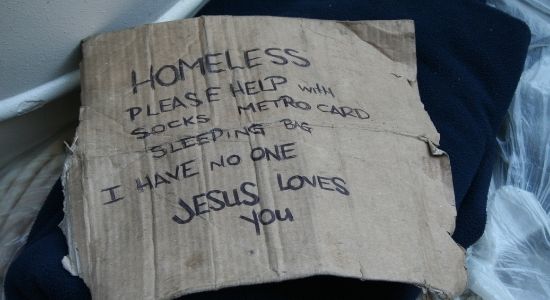 HOMELESS
PLEASE HELP with
SOCKS METROCARD
SLEEPING BAG
I HAVE NO ONE
JESUS LOVES
YOU